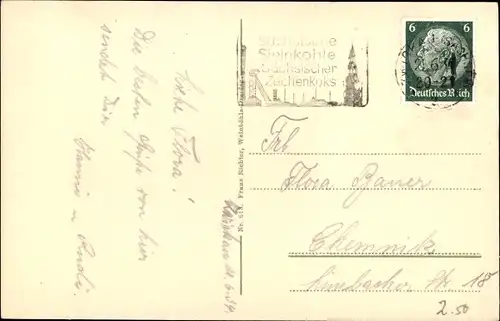 Liebe Flora!
Die besten Grüße von hier
sendet Dir
Hanni u. Rudi.
Nr. 618. Franz Richter, Weinböhla-Dresden
Sächsische
Steinkohle
Sächsischer
Zechenkoks
6 6
Deutsches Reich
Frl
Flora Bauer
Chemnitz
Limbacher Str. 18
2.50